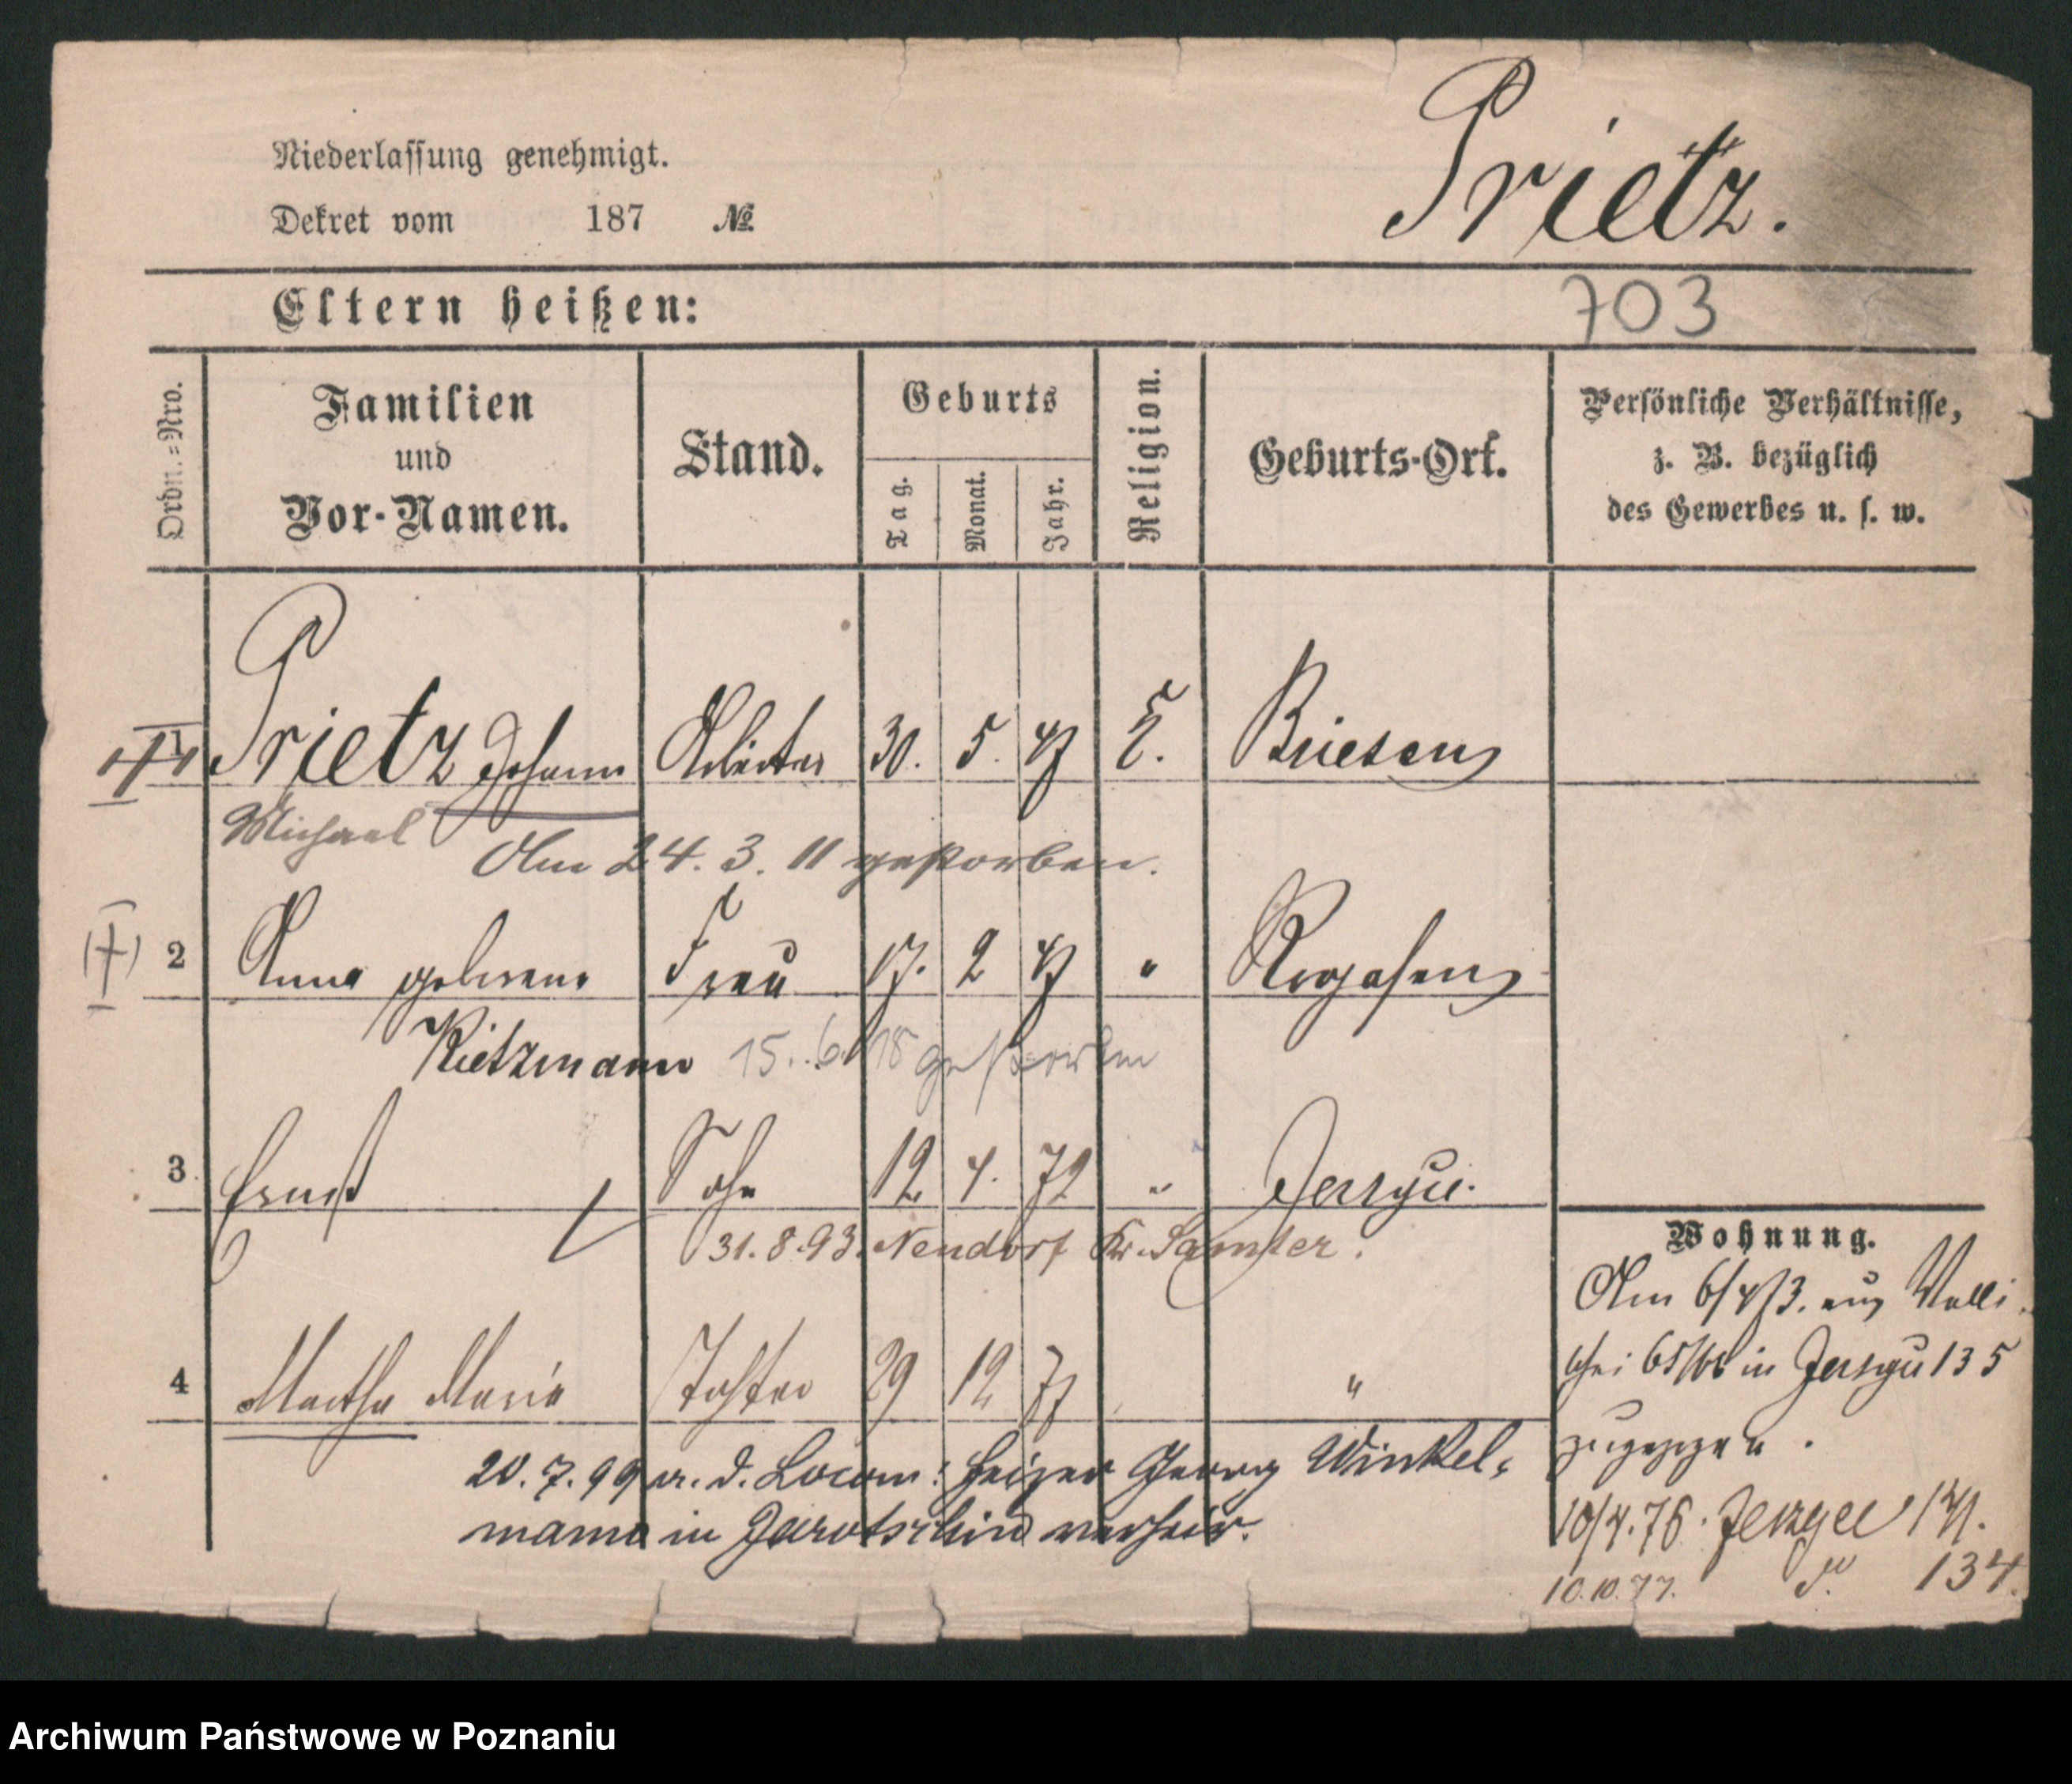 Niederlassung genehmigt.
Prietz.
Dekret vom 187 №
Eltern heißen:
703
Ordn.-Nro.
Familien
und
Vor-Namen.
Stand.
Geburts
Tag.
Monat.
Jahr.
Religion.
Geburts-Ort.
Persönliche Verhältnisse,
z. B. bezüglich
des Gewerbes u. s. w.
1 Prietz Johann Arbeiter 30. 5. 47 E. Briesen
Michael
Am 24. 3. 11 gestorben.
2 Anna geborene Frau 17. 2 47 " Rogasen
Kietzmann 15. 6. 18 gestorben
3. Ernst Sohn 12 4. 72 " Jersyce.
31. 8. 93. Neudorf Kr. Samter.
4 Martha Maria Tochter 29 12 77 "
20. 7. 99 m. d. Locom: Heizer Georg Winkel-
mann in Jarotschin verheir.
Wohnung.
Am 6/4 73. aus
in Jersyce 135
zugezogen.
10/4. 76. Jerzyce 141.
10. 10. 77. d. 134.